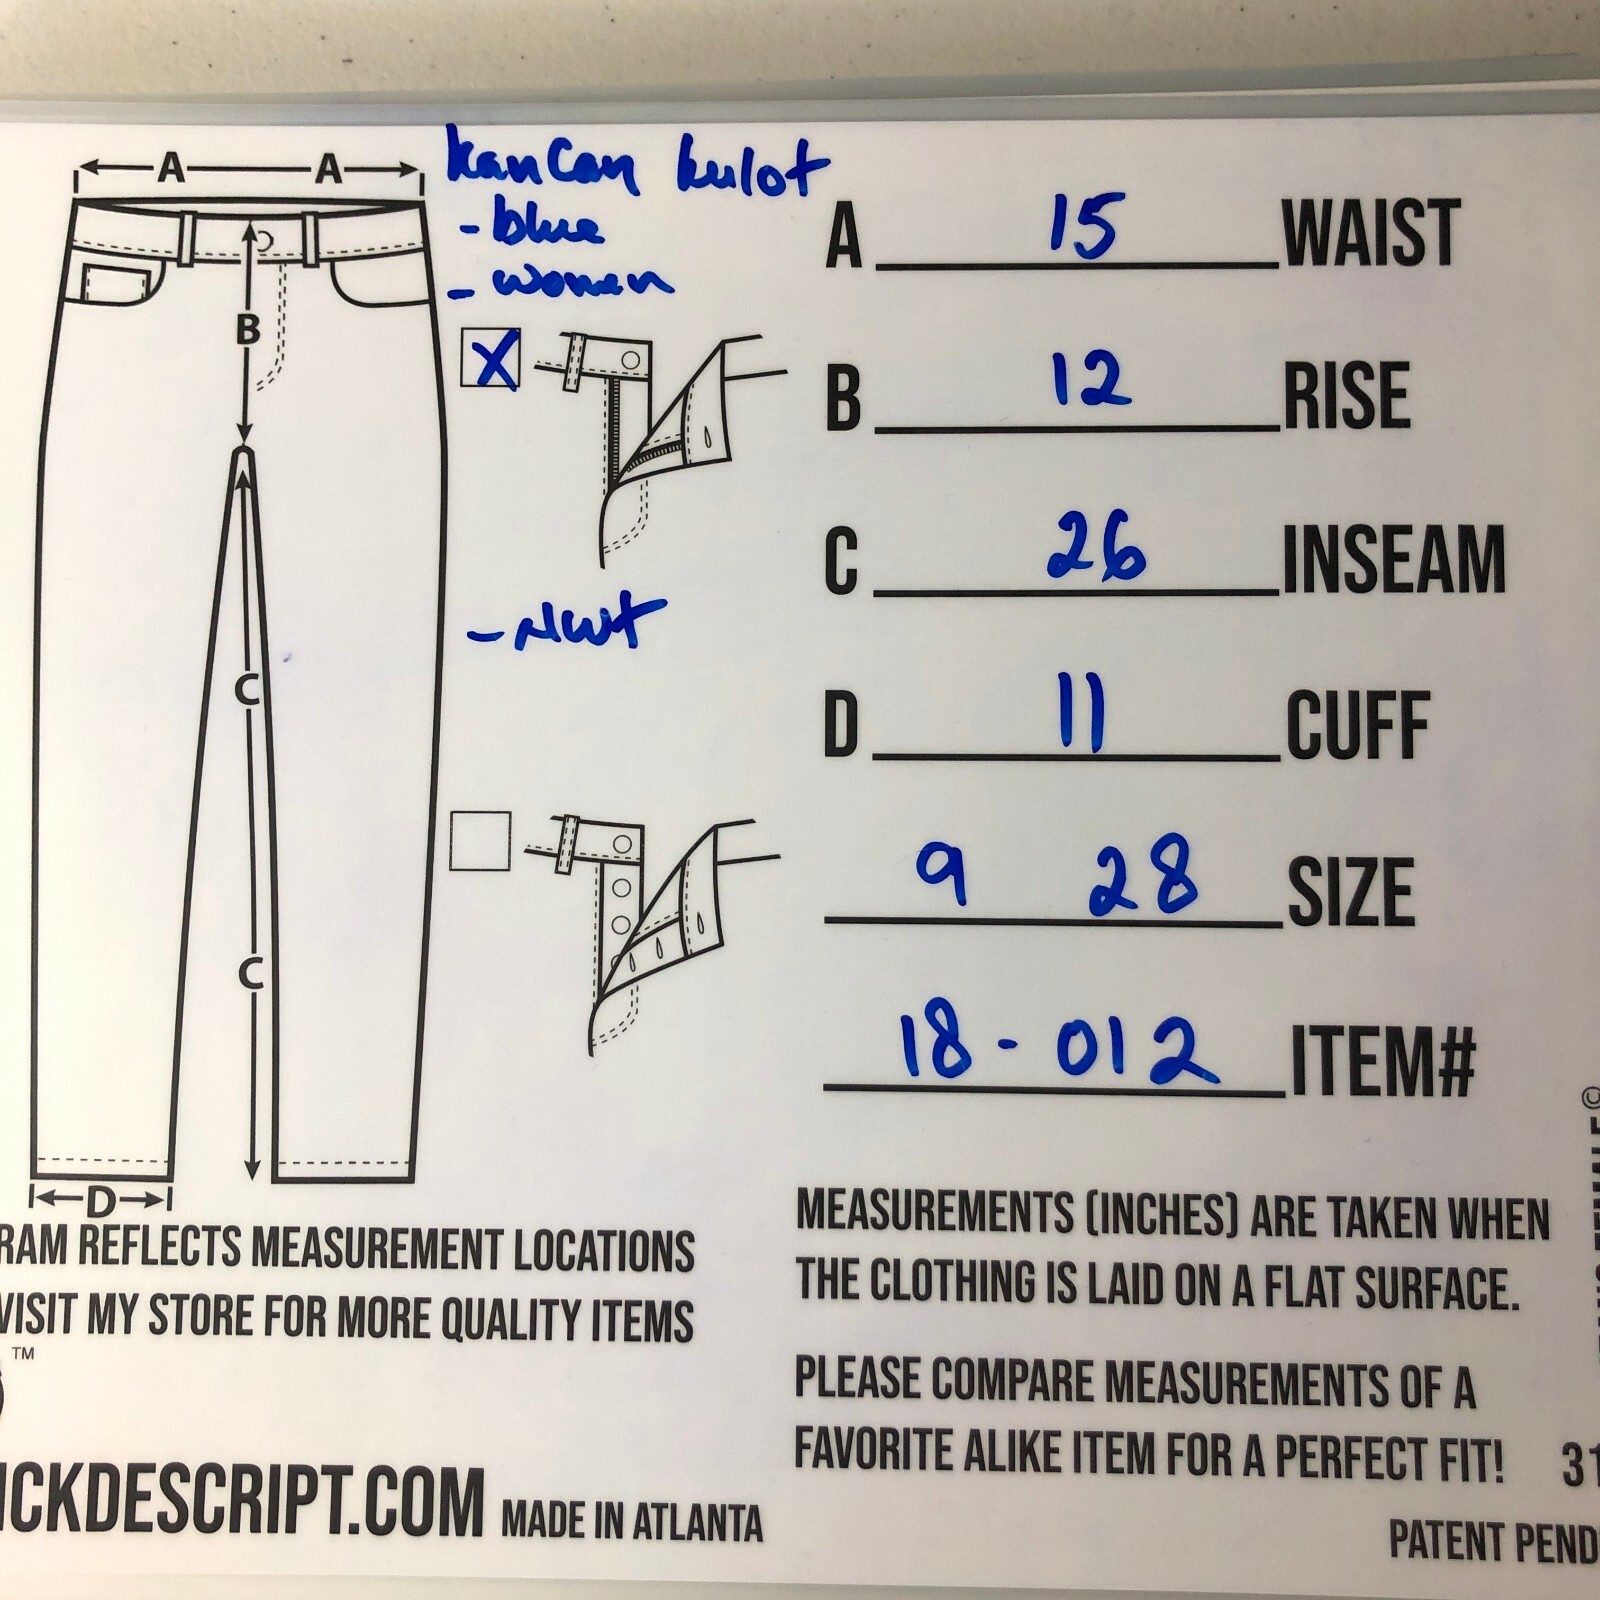 A A
kanCan kulot
- blue
- women
B
X
C
C
D
A 15 WAIST
B 12 RISE
C 26 INSEAM
D 11 CUFF
9 28 SIZE
18-012 ITEM#
RAM REFLECTS MEASUREMENT LOCATIONS
VISIT MY STORE FOR MORE QUALITY ITEMS
TM
ICKDESCRIPT.COM MADE IN ATLANTA
MEASUREMENTS (INCHES) ARE TAKEN WHEN
THE CLOTHING IS LAID ON A FLAT SURFACE.
PLEASE COMPARE MEASUREMENTS OF A
FAVORITE ALIKE ITEM FOR A PERFECT FIT!
31
PATENT PEND
©